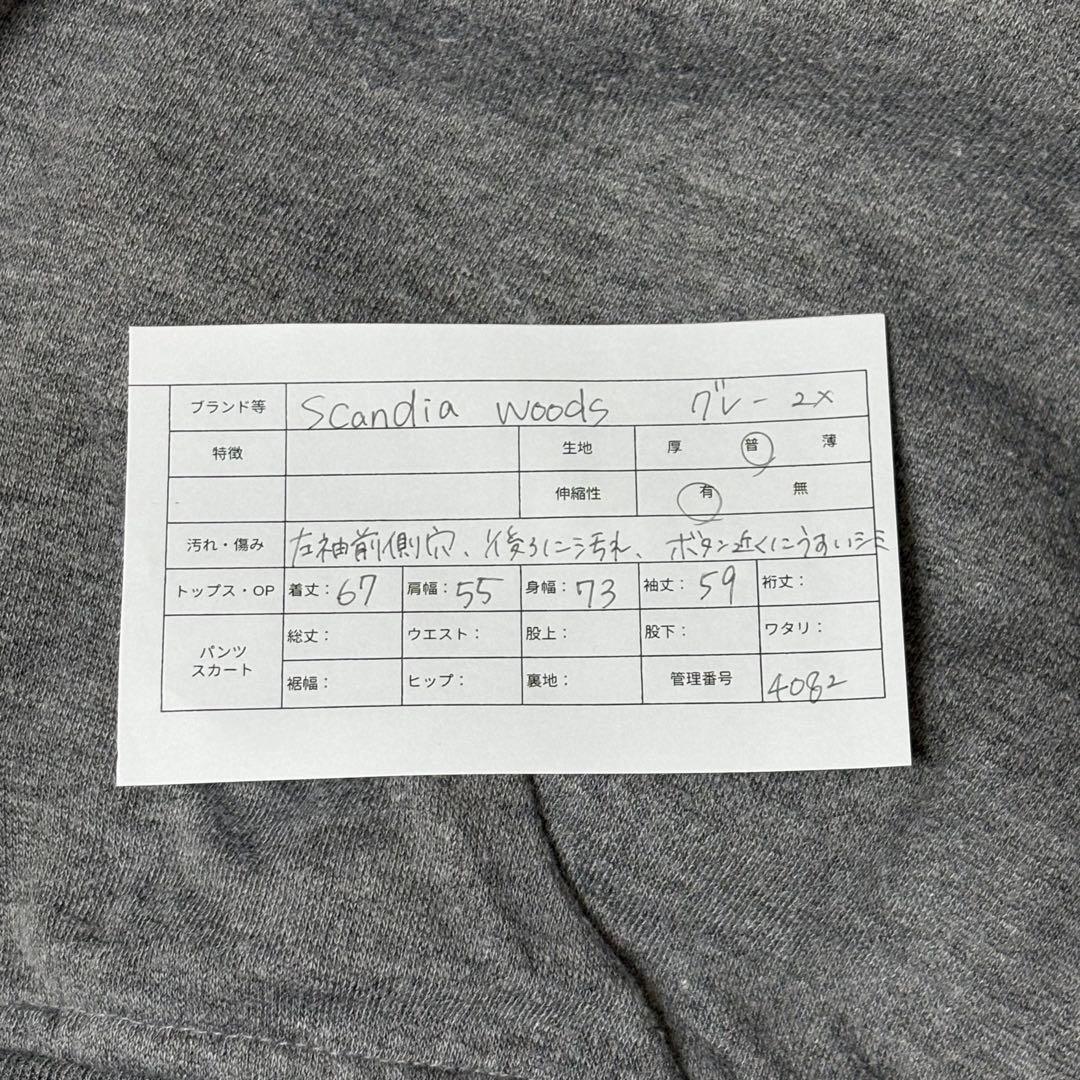 ブランド等 Scandia Woods グレー 2X
特徴 生地 厚 普 薄
伸縮性 有 無
汚れ・傷み 左袖前側穴、後ろに汚れ、ボタン近くにうすいシミ
トップス・OP 着丈：67 肩幅：55 身幅：73 袖丈：59 裄丈：
パンツ スカート 総丈： ウエスト： 股上： 股下： ワタリ：
裾幅： ヒップ： 裏地： 管理番号 4082